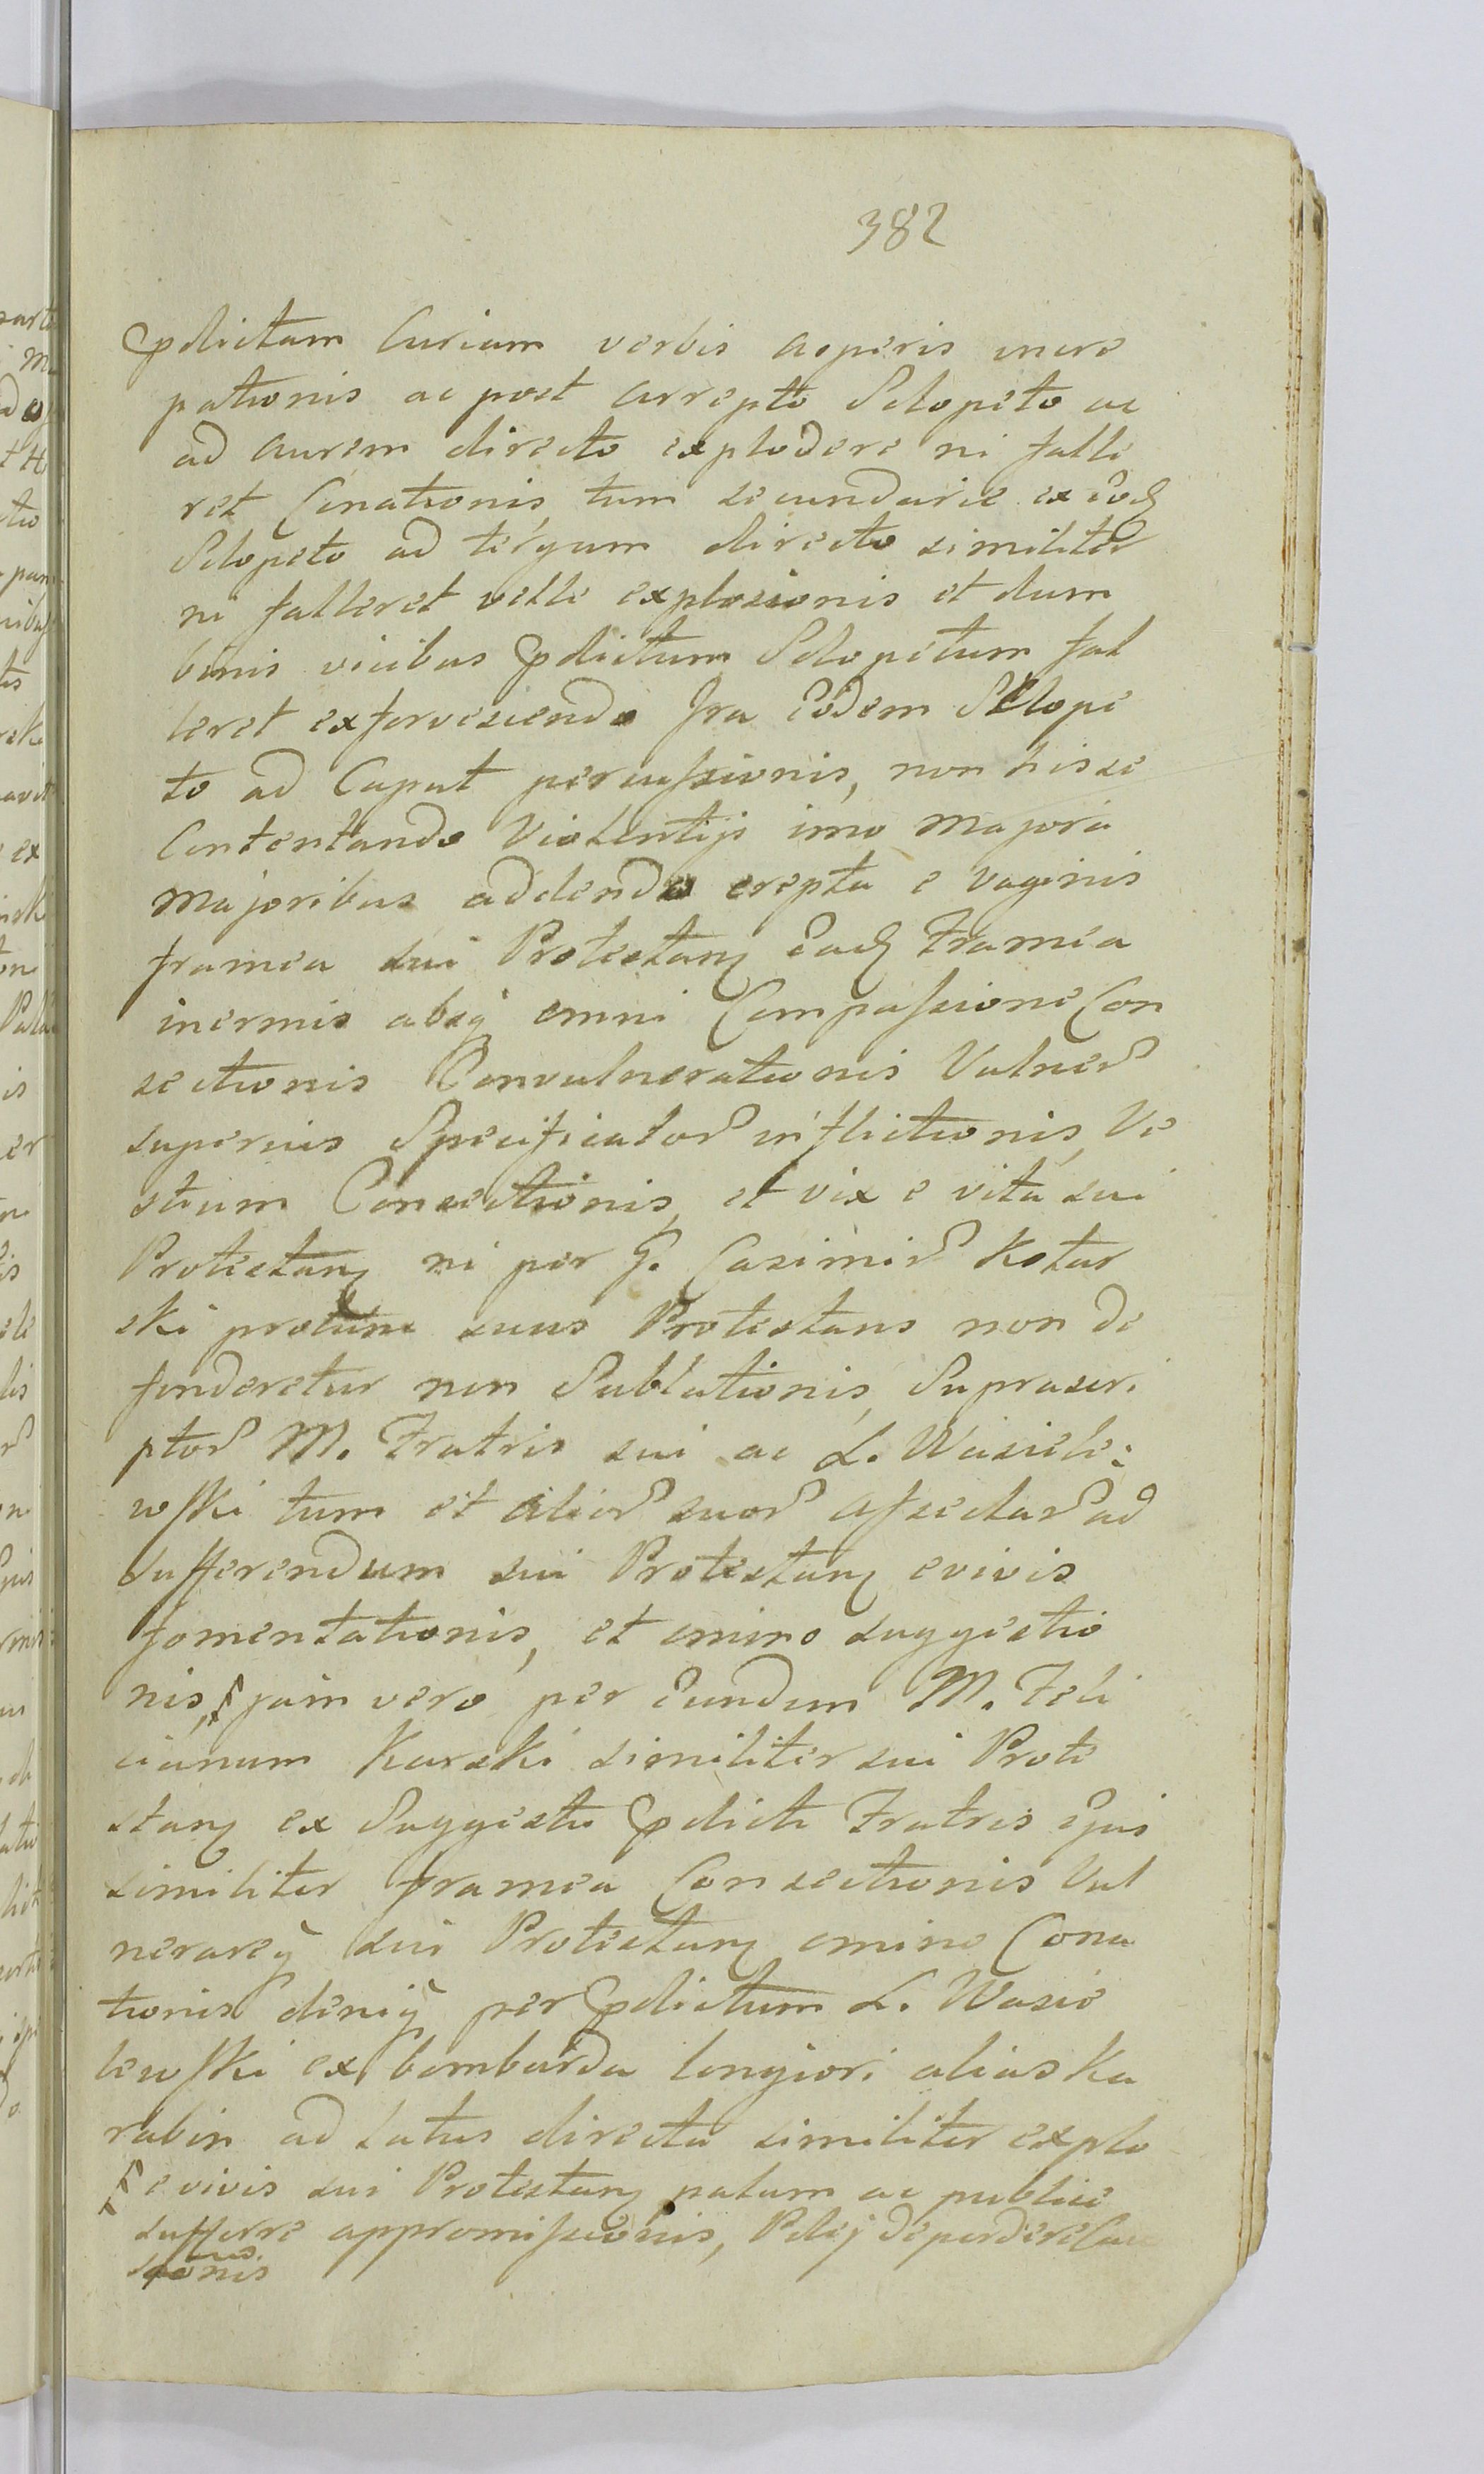 382
pdictam Curiam verbis asperis incre
pationis ac post arrepto Sclopeto ac
ad aurem directo explodere ni falle
ret Conationis, tum secundarie ex eod
Sclopeto ad tergum directo similiter
ni falleret velle explosionis et dum
binis vicibus pdictum Sclopetum fal
leret exfervesiendo Ira eodem Sclope
to ad Caput percussionis, non hisce
Contentando Violentijs imo majora
majoribus addendo erepta e vaginis
framea sui Protestan ead Framea
inermis absq omni Compassione Con
sectionis Convulnerationis Vulner
superius Specificator inflictionis, Ve
stium Consectionis, et vix e vita sui
Protestan ni per G. Casimir Kotar
ski protunc suus Protestans non de
fenderetur non Sublationis, Suprascri
ptor M. Fratris sui ac L. Wasiele:
wski tum et alior suor assectar ad
sufferendum sui Protestan evivis
fomentationis, et omino suggestio
nis, jam vero per eundem M. Feli
cianum Karski similiter sui Prote
stan ex Suggestu pdicti Fratris ejus
similiter framea Consectionis Vul
nerareq sui Protestan omino Cona
tionis deniq per pdictum L. Wasie
lewski ex bombarda longiori alias Ka
rabin ad latus directa similiter explo
e vivis sui Protestan palam ac publice
sufferre appromissionis, deperdere
sionis